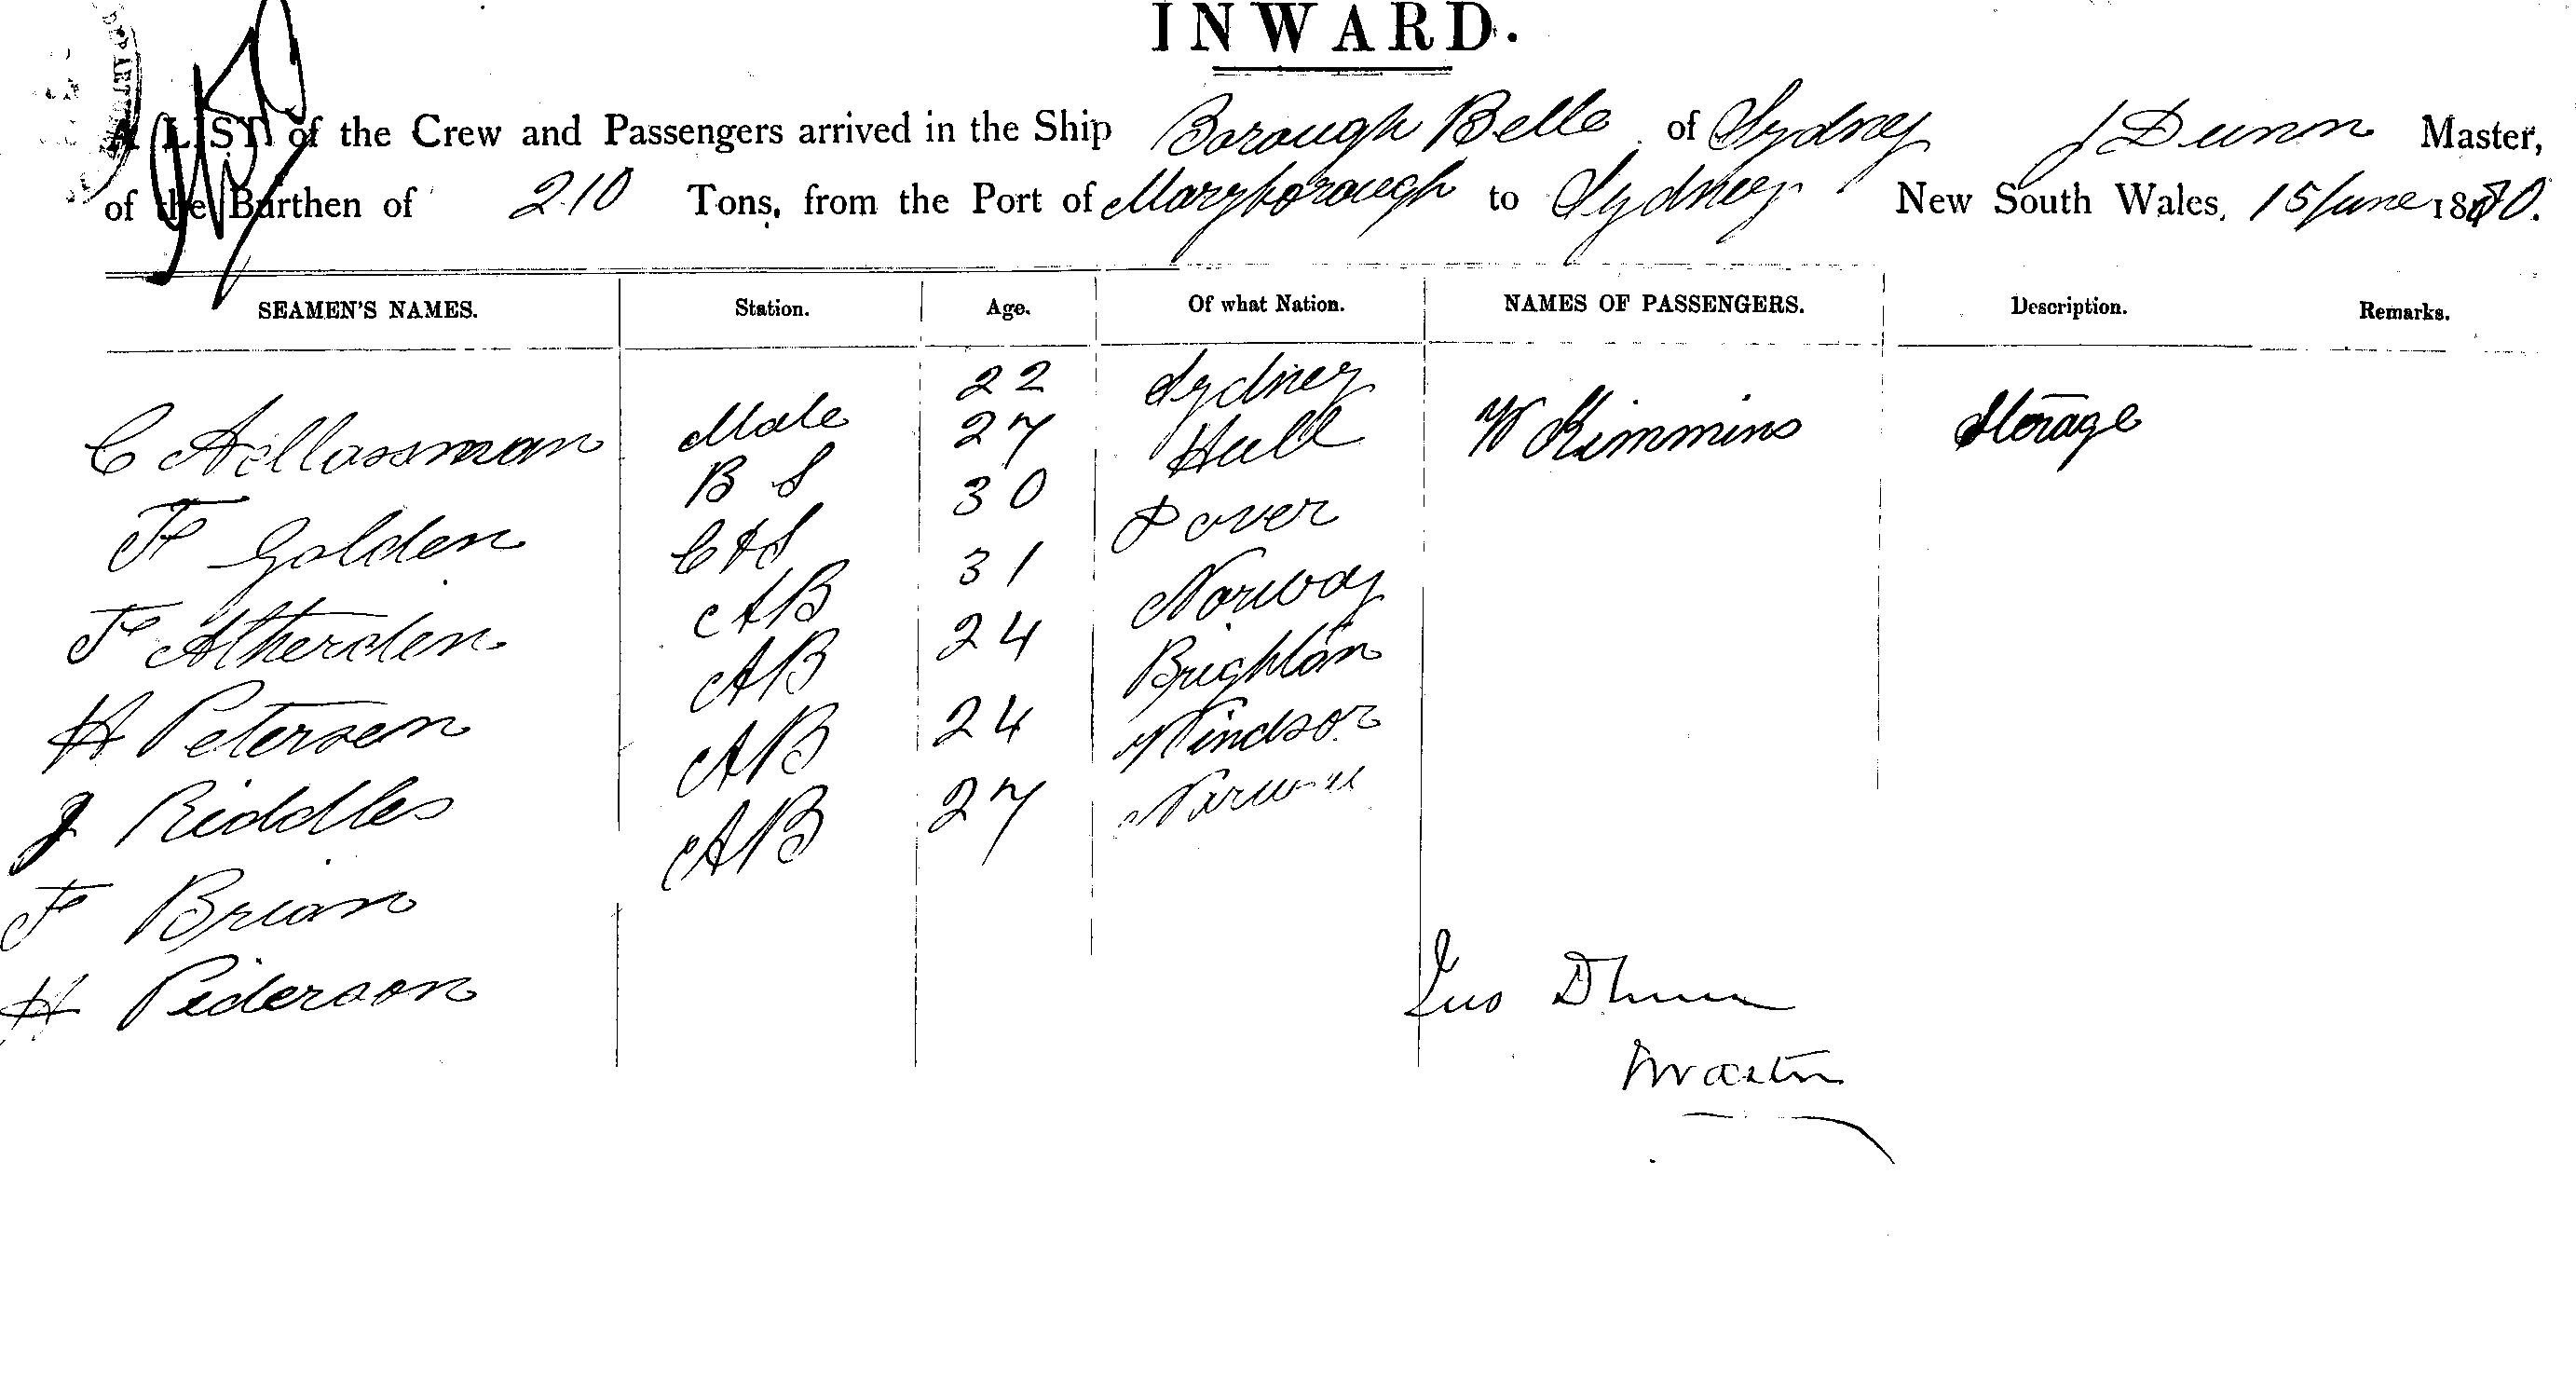 INWARD.
A LIST of the Crew and Passengers arrived in the Ship Borough Belle of Sydney J Dunn Master,
of the Burthen of 210 Tons, from the Port of Maryborough to Sydney New South Wales, 15 June 1880.
SEAMEN'S NAMES. Station. Age. Of what Nation. NAMES OF PASSENGERS. Description. Remarks.
C Mate 22 Sydney W Kimmins Storage
F Golden B S 27 Hull
F Atherden C & S 30 Dover
H Petersen AB 31 Norway
J Riddles AB 24 Brighton
F Brian AB 24 Windsor
H Pederson AB 27
Jno Dunn
Master